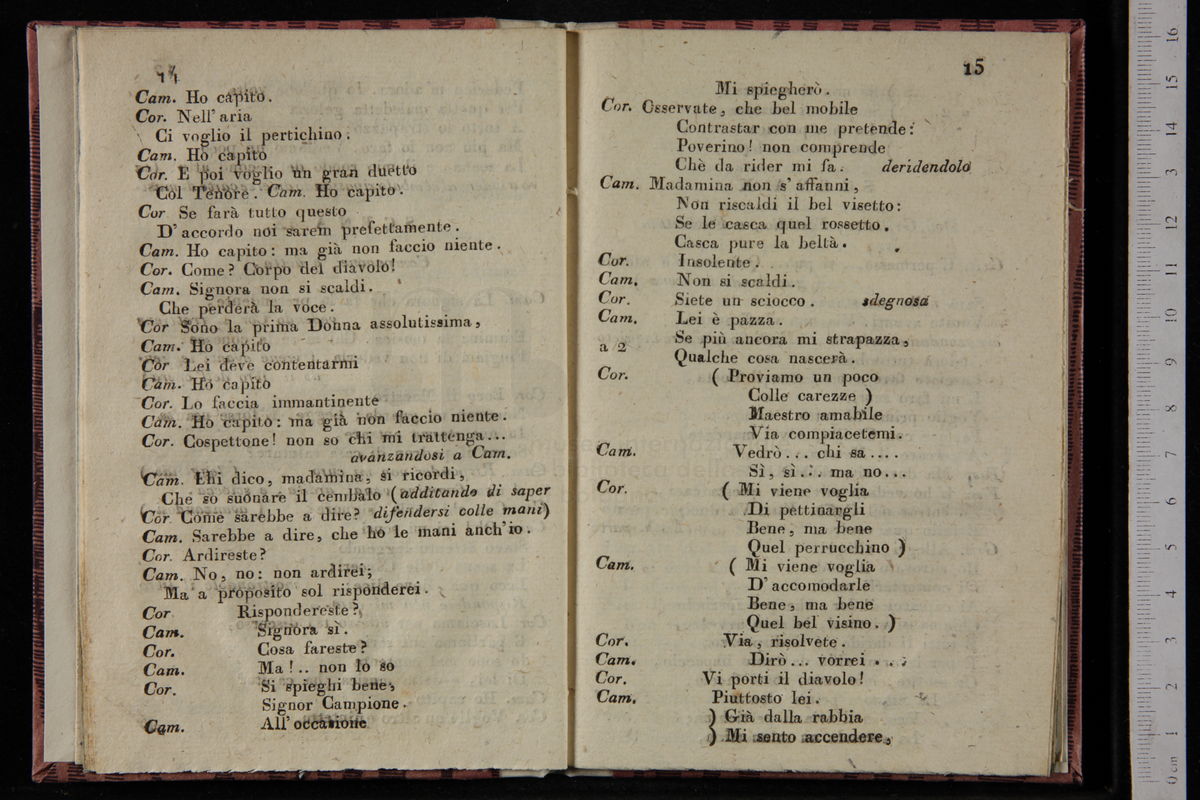 14
Cam. Ho capito.
Cor. Nell' aria
Ci voglio il pertichino.
Cam. Ho capito
Cor. E poi voglio un gran duetto
Col Tenore. Cam. Ho capito.
Cor Se farà tutto questo
D' accordo noi sarem prefettamente.
Cam. Ho capito: ma già non faccio niente.
Cor. Come? Corpo del diavolo!
Cam. Signora non si scaldi.
Che perderà la voce.
Cor Sono la prima Donna assolutissima,
Cam. Ho capito
Cor Lei deve contentarmi
Cam. Ho capito
Cor. Lo faccia immantinente
Cam. Ho capito: ma già non faccio niente.
Cor. Cospettone! non so chi mi trattenga...
avanzandosi a Cam.
Cam. Ehi dico, madamina, si ricordi,
Che so suonare il cembalo (additando di saper
Cor. Come sarebbe a dire? difendersi colle mani)
Cam. Sarebbe a dire, che ho le mani anch' io.
Cor. Ardireste?
Cam. No, no: non ardirei;
Ma a proposito sol risponderei.
Cor Rispondereste?
Cam. Signora sì.
Cor. Cosa fareste?
Cam. Ma!.. non lo so
Cor. Si spieghi bene,
Signor Campione.
Cam. All' occasione
15
Mi spiegherò.
Cor. Osservate, che bel mobile
Contrastar con me pretende:
Poverino! non comprende
Chè da rider mi fa. deridendolo
Cam. Madamina non s' affanni,
Non riscaldi il bel visetto:
Se le casca quel rossetto,
Casca pure la beltà.
Cor. Insolente.
Cam. Non si scaldi.
Cor. Siete un sciocco. sdegnosa
Cam. Lei è pazza.
a 2 Se più ancora mi strapazza,
Qualche cosa nascerà.
Cor. ( Proviamo un poco
Colle carezze )
Maestro amabile
Via compiacetemi.
Cam. Vedrò... chi sa....
Sì, sì... ma no...
Cor. ( Mi viene voglia
Di pettinargli
Bene, ma bene
Quel perrucchino )
Cam. ( Mi viene voglia
D' accomodarle
Bene, ma bene
Quel bel visino. )
Cor. Via, risolvete.
Cam. Dirò... vorrei...
Cor. Vi porti il diavolo!
Cam. Piuttosto lei.
) Già dalla rabbia
) Mi sento accendere,